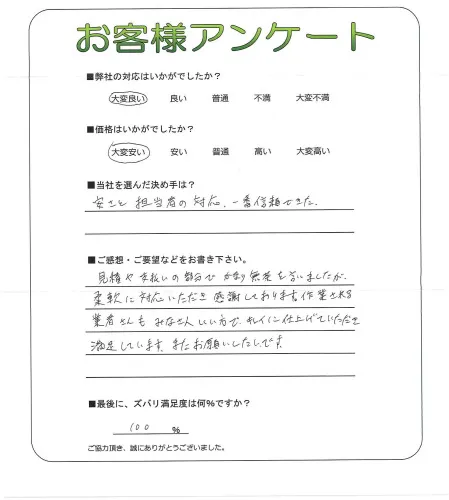 お客様アンケート
■弊社の対応はいかがでしたか？
大変良い 良い 普通 不満 大変不満
■価格はいかがでしたか？
大変安い 安い 普通 高い 大変高い
■当社を選んだ決め手は？
安さと担当者の対応、一番信頼できた。
■ご感想・ご要望などをお書き下さい。
見積や支払いの部分でかなり無理を言いましたが、
柔軟に対応いただき感謝しております。作業される
業者さんもみなさんいい方で、キレイに仕上げていただき
満足しています。またお願いしたいです。
■最後に、ズバリ満足度は何%ですか？
100 %
ご協力頂き、誠にありがとうございました。